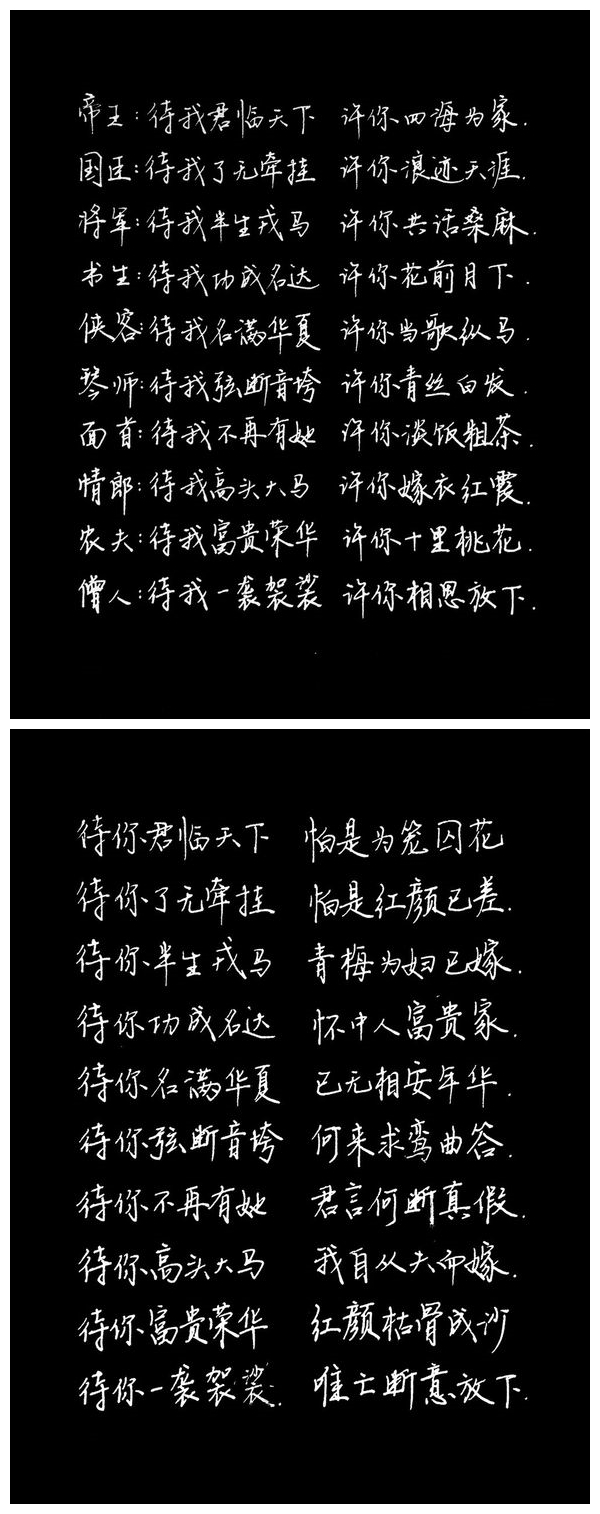 帝王:待我君临天下 许你四海为家.
国臣:待我了无牵挂 许你浪迹天涯.
将军:待我半生戎马 许你共话桑麻.
书生:待我功成名达 许你花前月下.
侠客:待我名满华夏 许你当歌纵马.
琴师:待我弦断音垮 许你青丝白发.
面首:待我不再有她 许你淡饭粗茶.
情郎:待我高头大马 许你嫁衣红霞.
农夫:待我富贵荣华 许你十里桃花.
僧人:待我一袭袈裟 许你相思放下.
待你君临天下 怕是为笼囚花
待你了无牵挂 怕是红颜已差.
待你半生戎马 青梅为妇已嫁.
待你功成名达 怀中人富贵家.
待你名满华夏 已无相安年华.
待你弦断音垮 何来求鸾曲答.
待你不再有她 君言何断真假.
待你高头大马 我自从夫而嫁.
待你富贵荣华 红颜枯骨成沙
待你一袭袈裟. 唯亡断意放下.